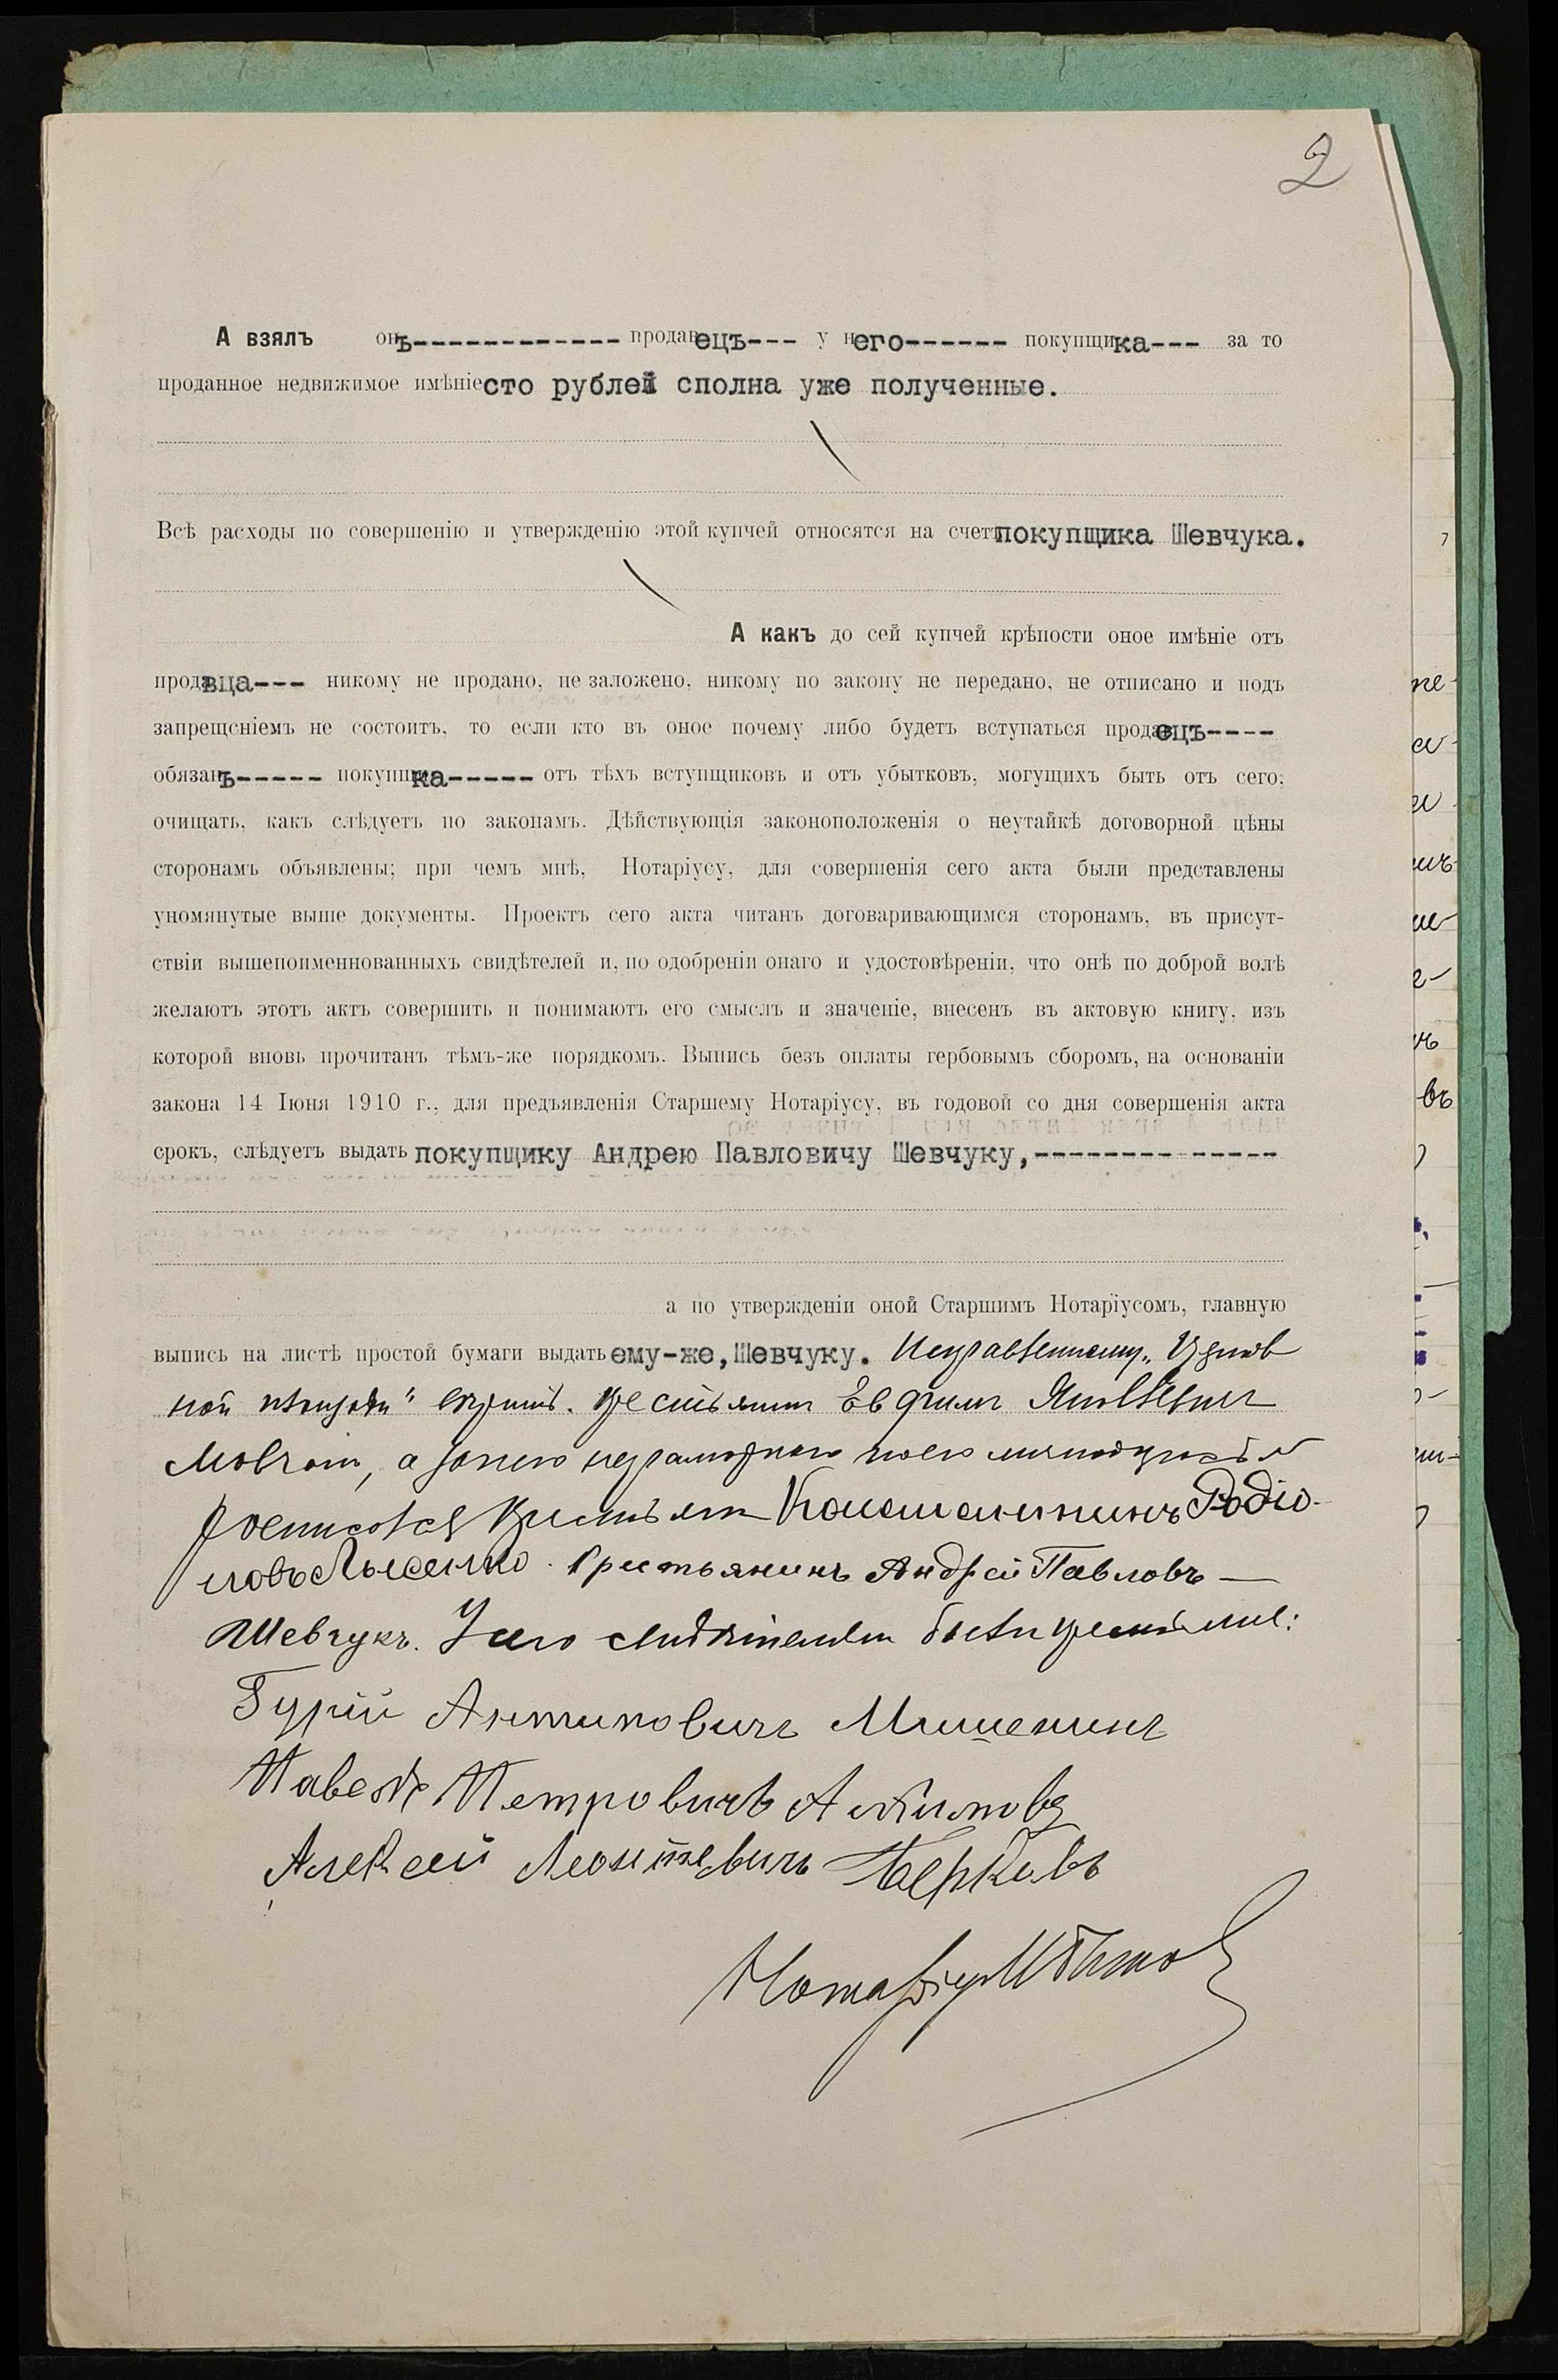 2
А взялъ онъ------------ продавецъ--- у него------ покупщика--- за то
проданное недвижимое имѣніе сто рублей сполна уже полученные.
Всѣ расходы по совершенію и утвержденію этой купчей относятся на счетъ покупщика Шевчука.
А какъ до сей купчей крѣпости оное имѣніе отъ
продавца--- никому не продано, не заложено, никому по закону не передано, не отписано и подъ
запрещеніемъ не состоитъ, то если кто въ оное почему либо будетъ вступаться продавецъ----
обязанъ----- покупщика----- отъ тѣхъ вступщиковъ и отъ убытковъ, могущихъ быть отъ сего,
очищать, какъ слѣдуетъ по законамъ. Дѣйствующія законоположенія о неутайкѣ договорной цѣны
сторонамъ объявлены; при чемъ мнѣ, Нотаріусу, для совершенія сего акта были представлены
упомянутые выше документы. Проектъ сего акта читанъ договаривающимся сторонамъ, въ присут-
ствіи вышепоименнованныхъ свидѣтелей и, по одобреніи онаго и удостовѣреніи, что онѣ по доброй волѣ
желаютъ этотъ актъ совершить и понимаютъ его смыслъ и значеніе, внесенъ въ актовую книгу, изъ
которой вновь прочитанъ тѣмъ-же порядкомъ. Выпись безъ оплаты гербовымъ сборомъ, на основаніи
закона 14 Іюня 1910 г., для предъявленія Старшему Нотаріусу, въ годовой со дня совершенія акта
срокъ, слѣдуетъ выдать покупщику Андрею Павловичу Шевчуку,-------------
а по утвержденіи оной Старшимъ Нотаріусомъ, главную
выпись на листѣ простой бумаги выдать ему-же, Шевчуку.
площади"
Мовчанъ, а
Константинъ Родіо-
новъ Лысенко. Крестьянинъ Андрей Павловъ —
Шевчукъ. были
Гурій Антиповичъ Мишенинъ
Павелъ Петровичъ
Алексей Леонтьевичъ
Нотаріусъ